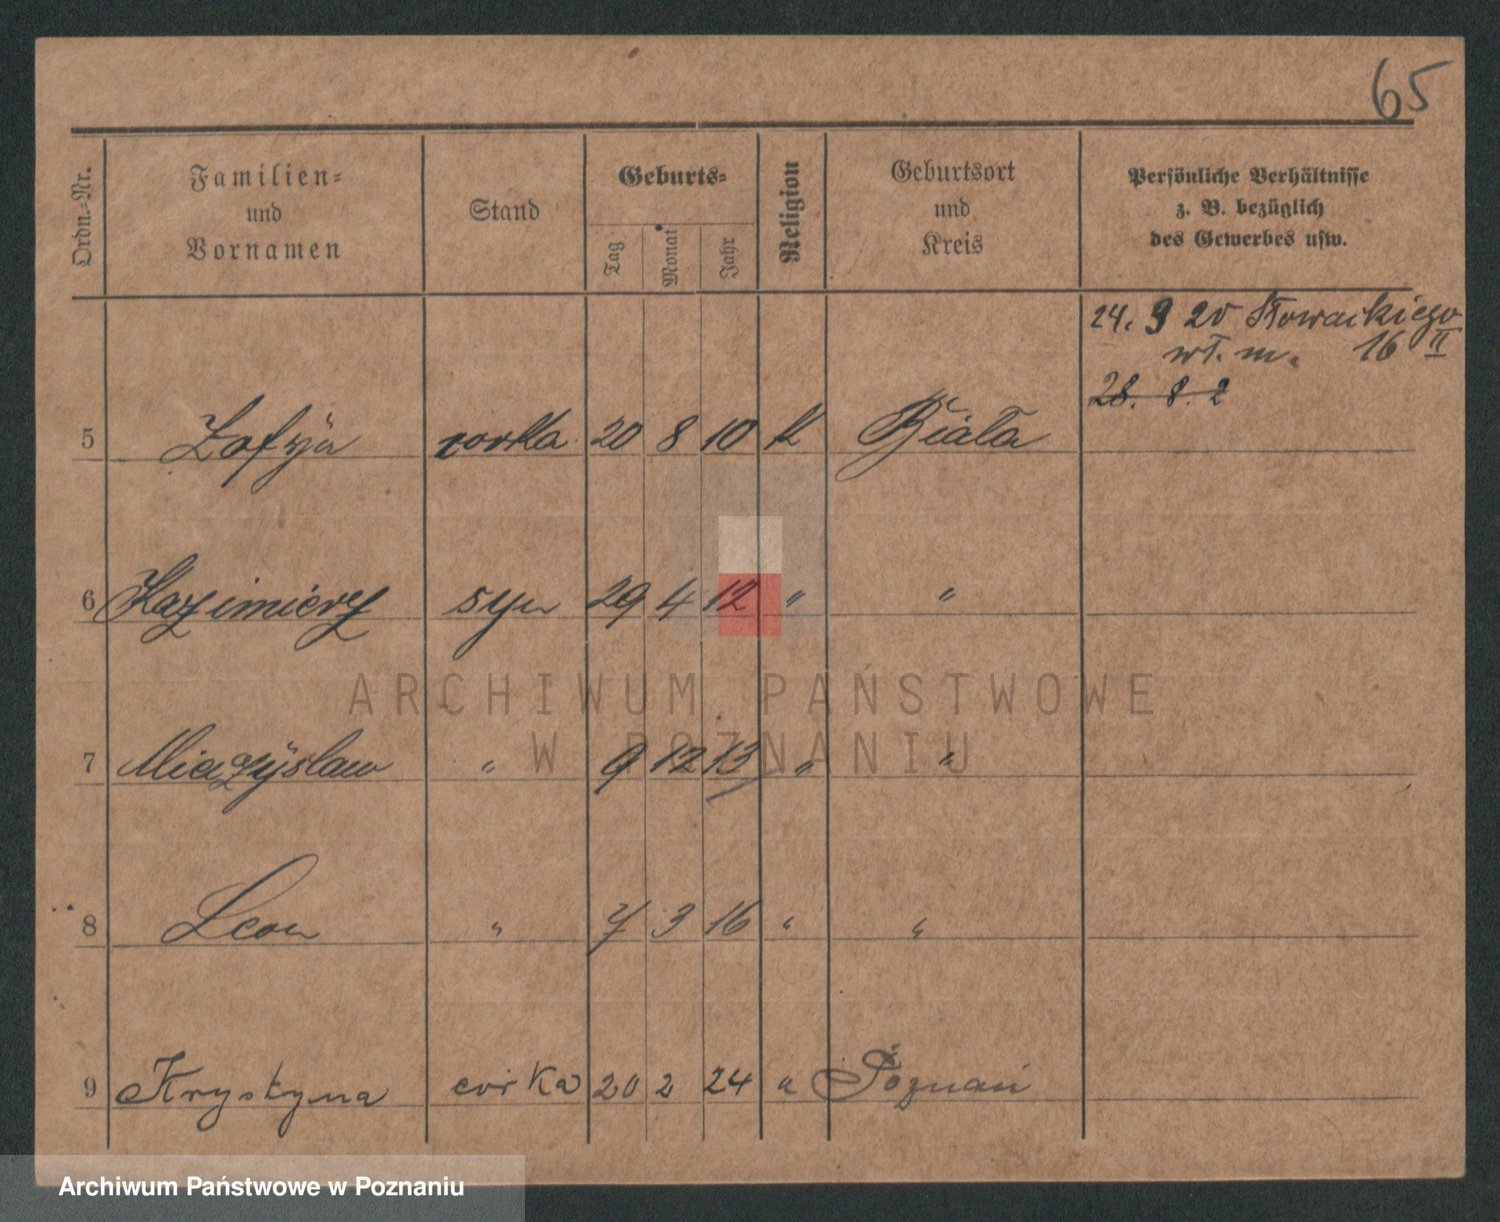 65
Ordn.-Nr.
Familien-
und
Vornamen
Stand
Geburts-
Tag
Monat
Jahr
Religion
Geburtsort
und
Kreis
Persönliche Verhältnisse
z. B. bezüglich
des Gewerbes usw.
24. 9 20 Słowackiego
wł. m. 16 II
28. 8. 2
5 Zofyja corka 20 8 10 K Biała
6 Kazimierz syn 29 4 12 " "
7 Mieczysław " 9 12 13 " "
8 Leon " 7 3 16 " "
9 Krystyna córka 20 2 24 " Poznań
ARCHIWUM PAŃSTWOWE
W POZNANIU
Archiwum Państwowe w Poznaniu